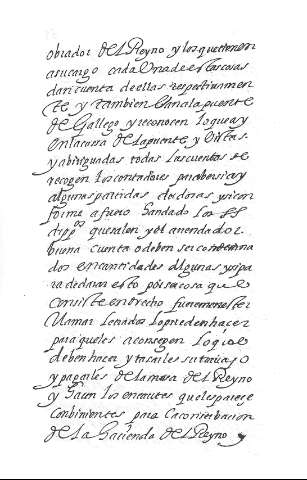 obrador del Reyno y los que tienen
a su cargo cada Una de estas cosas
dan cuenta de ellas respectivamen
te y tambien Chanala puente
de Gallego y reconocen lo que ay
en la casa de la puente y
y abiriguadas todas las cuentas se
recogen los contadores para ber si ay
algunas partidas dudosas y si con
forme a fuero han dado los SS
dipp.os que salen y el arrendador
buena cuenta o deben ser condenna
dos en cantidades Algunas y si pa
ra declarar esto por ser cosa que
consiste en drecho fuere menester
llamar letrados lo pueden hacer
para que les aconsegen lo que
deben hacer y tacarles su trabajo
y pagarles de la massa del Reyno
y hacen los encautes que les parece
combinientes para la conserbacion
de la hacienda del Reyno y